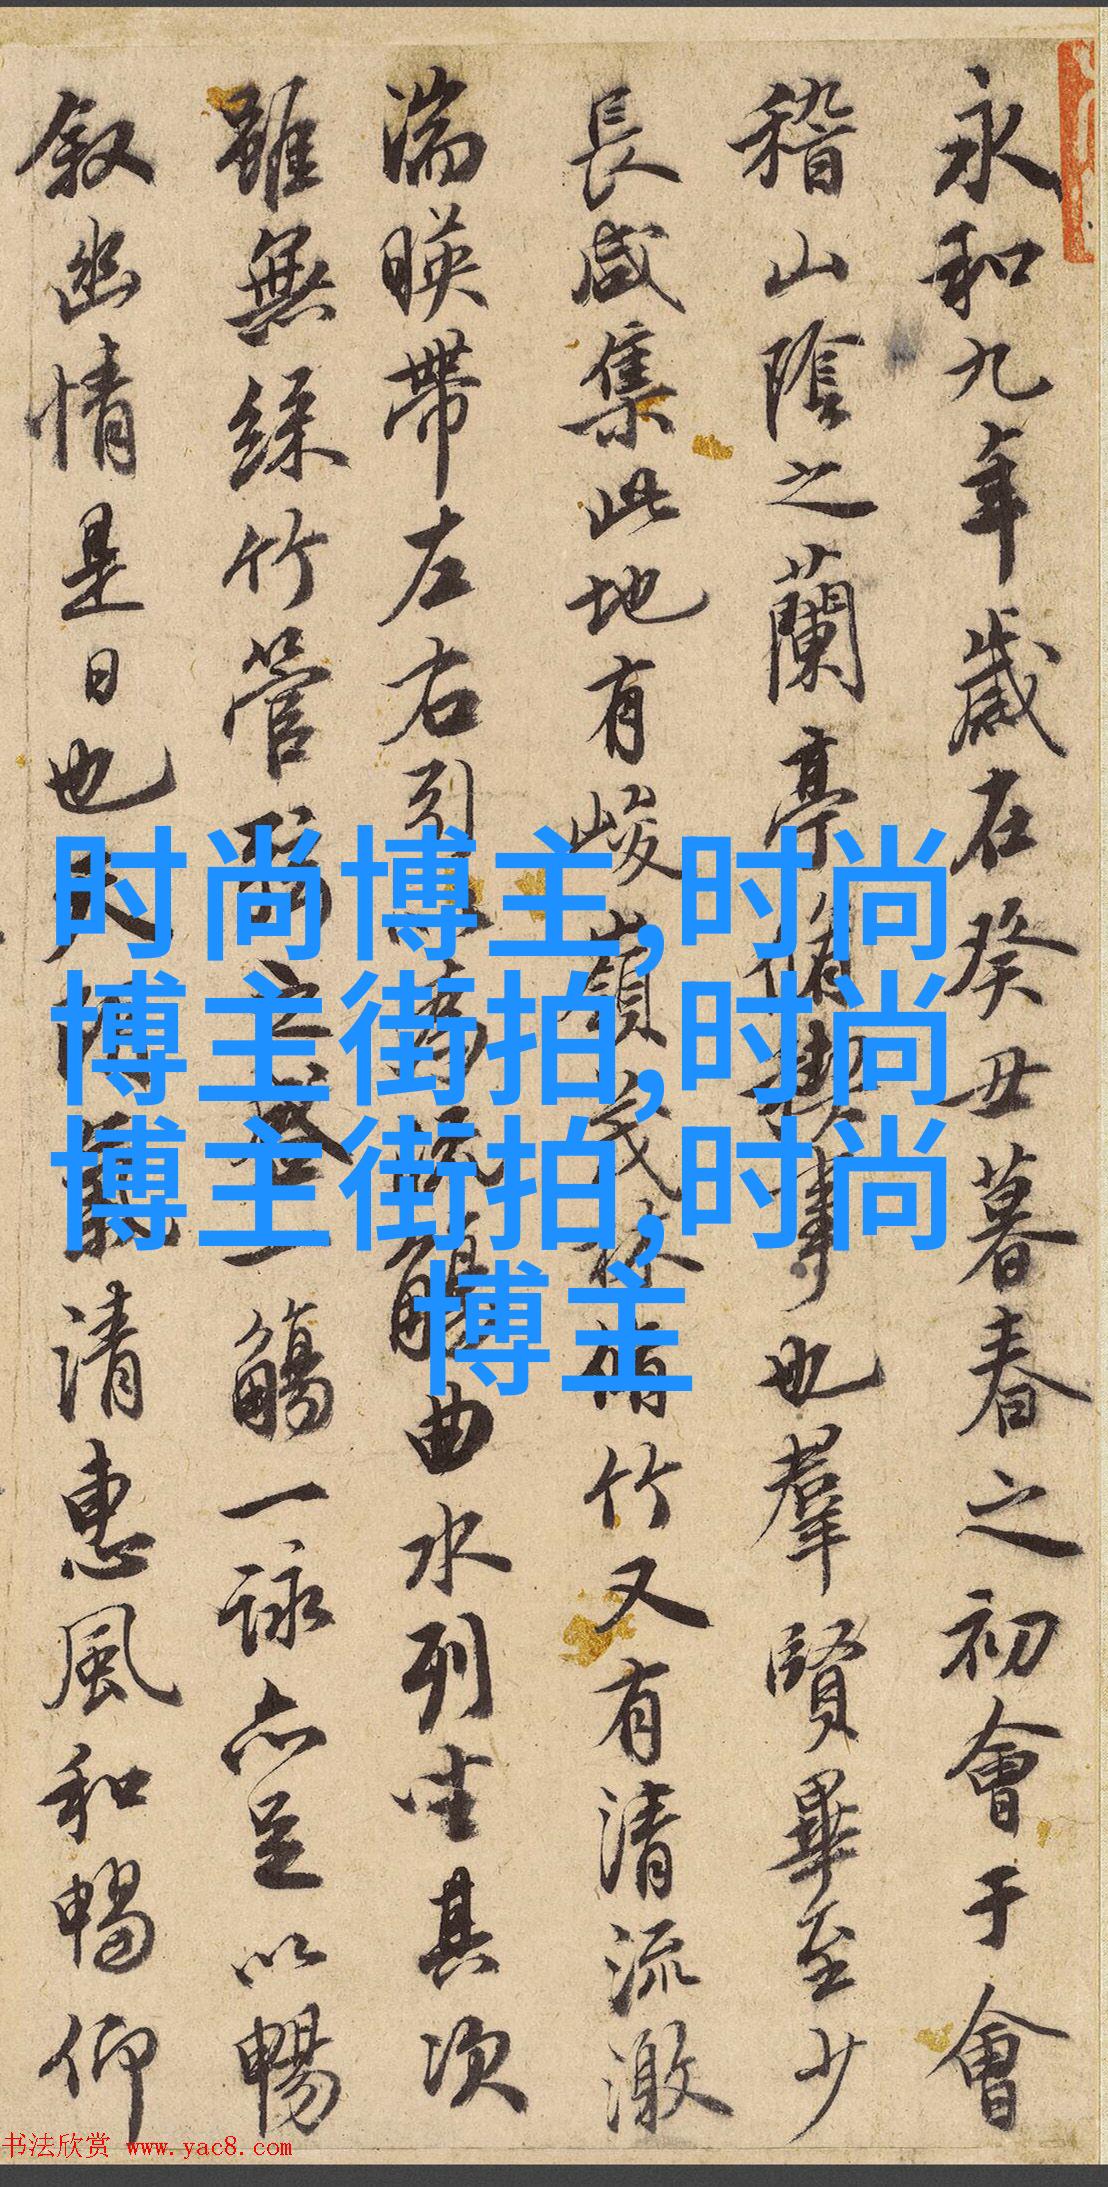 永和九年歲在癸丑暮春之初會于會
稽山陰之蘭亭脩稧事也羣賢畢至少
長咸集此地有峻嶺茂林脩竹又有清流激
湍暎帶左右引為流觴曲水列坐其次
雖無絲竹管之盛一觴一詠亦足以暢
叙幽情是日也天朗氣清惠風和暢仰
时尚博主,时尚
博主街拍,时尚
博主街拍,时尚
博主
书法欣赏 www.yac8.com